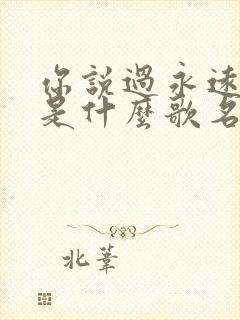 你說過永遠
是什麼歌名
北葦